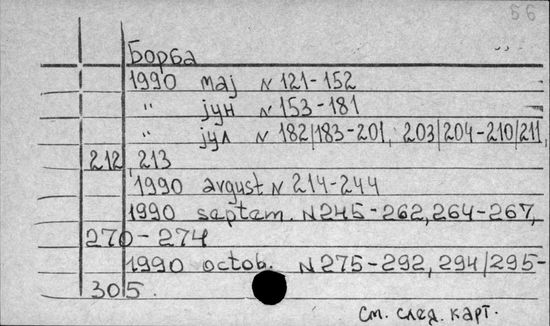 56
Борба
1990 мај N 121-152
" јун N 153-181
" јул N 182/183-201, 203/204-210/211,
212, 213
1990 avgust N 214-244
1990 septem. N 245-262, 264-267,
270-274
1990 octob. N 275-292, 294/295-
305.
См. след. карт.